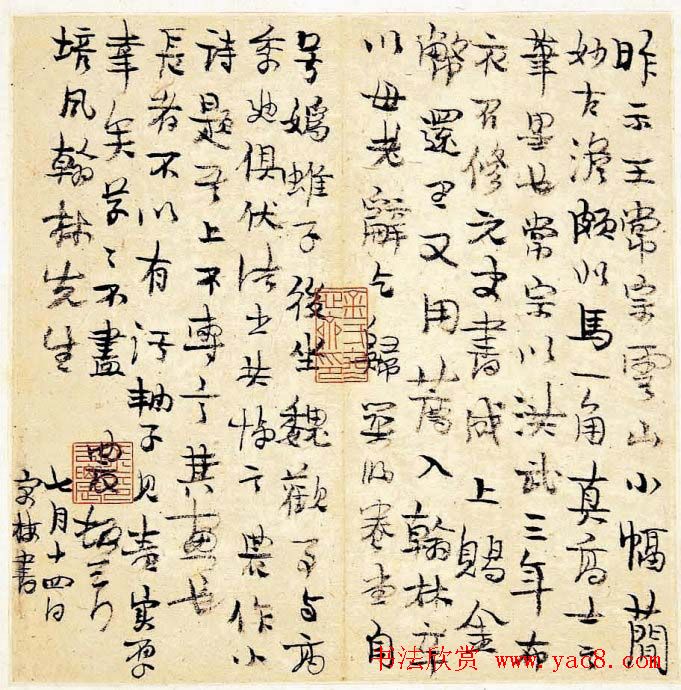 昨示王常宗雲山小幅簡
妙古澹頗似馬一角真高士之
筆墨也常宗以洪武三年布
衣召修元史書成上賜金
幣還里又用薦入翰林亦
以母老辭乞歸卷自
号媯蜼子後坐魏觀事与高
季迪俱伏法士共惜之農作小
詩題其上不專言其畫也
長者不以有污軸子見責實厚
幸矣草々不盡
培風翰林先生
七月十四日
书法欣赏 www.yac8.com